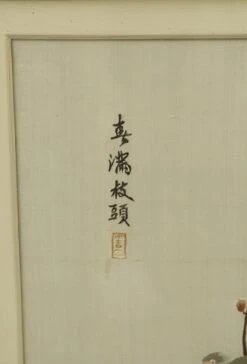 春滿枝頭